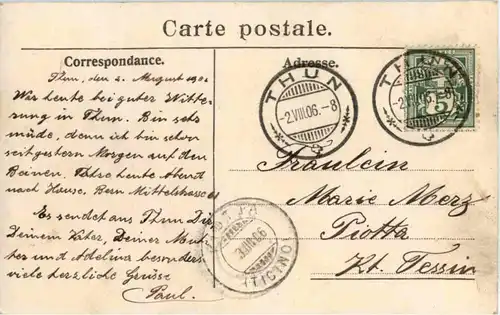 Carte postale.
Correspondance.
Adresse.
Thun, den 2. August 190
War heute bei guter Witte-
rung in Thun. Bin sehr
müde, denn ich bin schon
seit gestern Morgen auf den
Beinen. Fahre heute Abend
nach Hause. Bern Mittelstrasse
Es sendet aus Thun Dir
Deinem Vater, Deiner Mut
ter und Adelina besonders
viele herzliche Grüsse
Paul.
THUN
-2.VIII.06.-8
THUN
-2.VIII.06.-8
5
Fräulein
Marie Merz
Piotta
Kt. Tessin
PIOTTA
3.VIII.06
(TICINO)